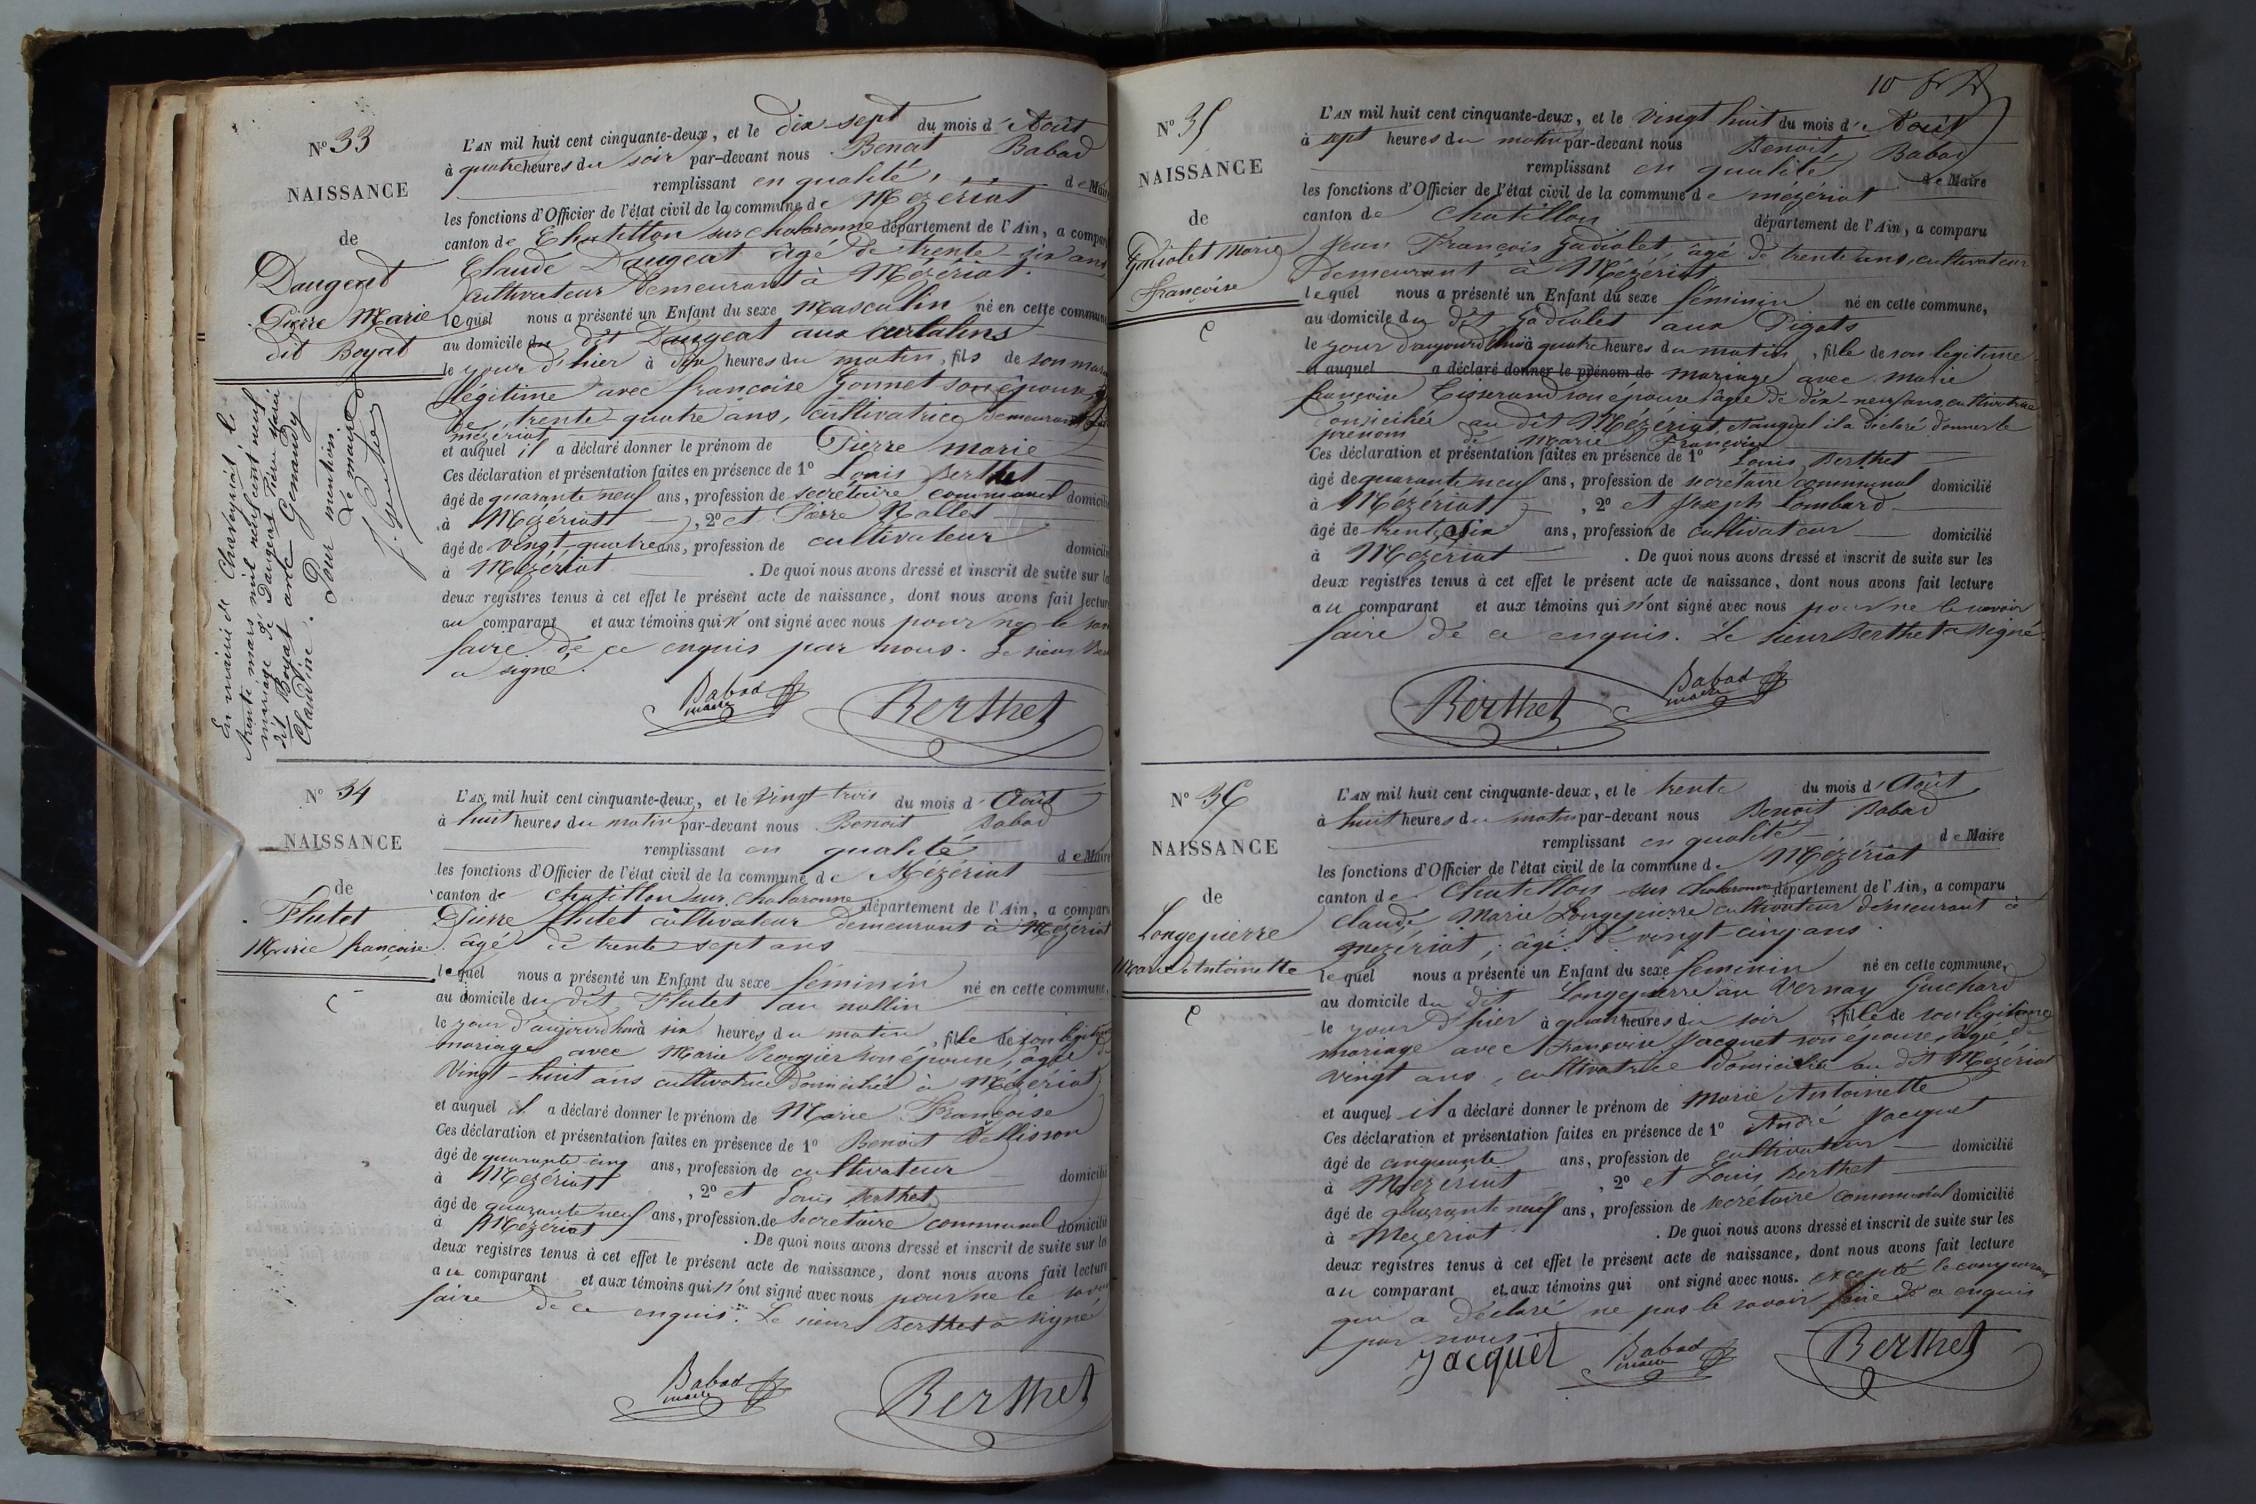 N° 33
NAISSANCE
de
Daugeat
Pierre Marie
dit Boyat
En mairie de Chaveyriat le
trente mars mil neuf cent neuf
mariage de Daugeat Pierre Marie
dit Boyat avec Gonandy
Claudine. Pour mention.
Le maire
L'AN mil huit cent cinquante-deux, et le dix-sept du mois d'Août
à quatre heures du soir par-devant nous Benoit Babad
remplissant en qualité de Maire
les fonctions d'Officier de l'état civil de la commune de Mézériat
canton de Chatillon sur Chalaronne département de l'Ain, a comparu
Claude Daugeat âgé de trente-six ans
cultivateur demeurant à Mézériat.
lequel nous a présenté un Enfant du sexe Masculin né en cette commune
au domicile du dit Daugeat aux curtalins
le jour d'hier à dix heures du matin, fils de son mariage
légitime avec françoise Gonnet son épouse, âgée
de trente-quatre ans, cultivatrice demeurant
mézériat
et auquel il a déclaré donner le prénom de Pierre marie
Ces déclaration et présentation faites en présence de 1° Louis Berthet
âgé de quarante neuf ans, profession de secrétaire communal domicilié
à Mézériat, 2° et Pierre Rollet
âgé de vingt-quatre ans, profession de cultivateur domicilié
à Mézériat. De quoi nous avons dressé et inscrit de suite sur les
deux registres tenus à cet effet le présent acte de naissance, dont nous avons fait lecture
au comparant et aux témoins qui n'ont signé avec nous pour ne le savoir
faire de ce enquis par nous. Le sieur Berthet
a signé.
Babad
maire
Berthet
N° 34
NAISSANCE
de
Flutet
Marie françoise
L'AN mil huit cent cinquante-deux, et le vingt trois du mois d'Août
à huit heures du matin par-devant nous Benoit Babad
remplissant en qualité de Maire
les fonctions d'Officier de l'état civil de la commune de Mézériat
canton de Chatillon sur Chalaronne département de l'Ain, a comparu
Pierre flutet cultivateur demeurant à Mézériat
âgé de trente sept ans
lequel nous a présenté un Enfant du sexe féminin né en cette commune,
au domicile du dit Flutet au mollin
le jour d'aujourd'hui à six heures du matin, fille de son légitime
mariage avec Marie son épouse, âgée de
Vingt-huit ans cultivatrice domiciliée à Mézériat
et auquel il a déclaré donner le prénom de Marie Françoise
Ces déclaration et présentation faites en présence de 1° Benoit Pellisson
âgé de quarante cinq ans, profession de cultivateur domicilié
à Mézériat, 2° et Louis Berthet
âgé de quarante neuf ans, profession de secrétaire communal domicilié
à Mézériat. De quoi nous avons dressé et inscrit de suite sur les
deux registres tenus à cet effet le présent acte de naissance, dont nous avons fait lecture
au comparant et aux témoins qui n'ont signé avec nous pour ne le savoir
faire de ce enquis. Le sieur Berthet a signé
Babad
maire
Berthet
10
N° 35
NAISSANCE
de
Gadiolet Marie
Françoise
L'AN mil huit cent cinquante-deux, et le vingt huit du mois d'Août
à sept heures du matin par-devant nous Benoit Babad
remplissant en qualité de Maire
les fonctions d'Officier de l'état civil de la commune de mézériat
canton de Chatillon département de l'Ain, a comparu
Jean François Gadiolet, âgé de trente ans, cultivateur
demeurant à Mézériat
lequel nous a présenté un Enfant du sexe féminin né en cette commune,
au domicile du dit Gadiolet aux Pigets
le jour d'aujourd'hui à quatre heures du matin, fille de son légitime
et auquel a déclaré donner le prénom de mariage avec Marie
françoise Tisserand son épouse âgée de dix-neuf ans, cultivatrice
domiciliée au dit Mézériat, et auquel il a déclaré donner le
prénom de Marie Françoise
Ces déclaration et présentation faites en présence de 1° Louis Berthet
âgé de quarante neuf ans, profession de secrétaire communal domicilié
à Mézériat, 2° et Joseph Lombard
âgé de trente six ans, profession de cultivateur domicilié
à Mézériat. De quoi nous avons dressé et inscrit de suite sur les
deux registres tenus à cet effet le présent acte de naissance, dont nous avons fait lecture
au comparant et aux témoins qui n'ont signé avec nous pour ne le savoir
faire de ce enquis. Le sieur Berthet a signé.
Berthet
Babad
maire
N° 36
NAISSANCE
de
Longepierre
Marie Antoinette
L'AN mil huit cent cinquante-deux, et le trente du mois d'Août
à huit heures du matin par-devant nous Benoit Babad
remplissant en qualité de Maire
les fonctions d'Officier de l'état civil de la commune de Mézériat
canton de Chatillon-sur Chalaronne département de l'Ain, a comparu
Claude Marie Longepierre cultivateur demeurant à
mézériat, âgé de vingt-cinq ans.
lequel nous a présenté un Enfant du sexe féminin né en cette commune,
au domicile du dit Longepierre au Vernay Guichard
le jour d'hier à quatre heures du soir, fille de son légitime
mariage avec Françoise Jacquet son épouse, âgée de
vingt ans, cultivatrice domiciliée au dit Mézériat
et auquel il a déclaré donner le prénom de Marie Antoinette
Ces déclaration et présentation faites en présence de 1° André Jacquet
âgé de cinquante ans, profession de cultivateur domicilié
à Mézériat, 2° et Louis Berthet
âgé de quarante neuf ans, profession de secrétaire communal domicilié
à Mézériat. De quoi nous avons dressé et inscrit de suite sur les
deux registres tenus à cet effet le présent acte de naissance, dont nous avons fait lecture
au comparant et aux témoins qui ont signé avec nous. excepté le comparant
qui a déclaré ne pas le savoir faire de ce enquis
par nous
Jacquet
Babad
maire
Berthet